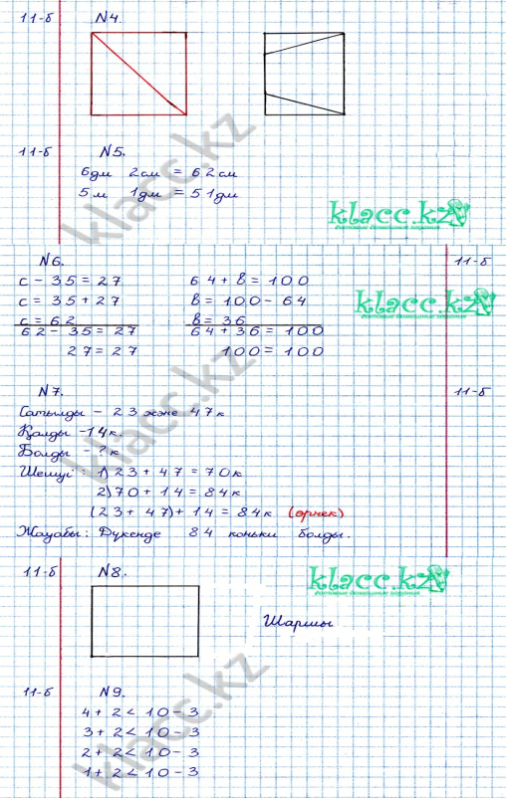 11-б №4
11-б №5.
6дм 2см = 62см
5м 1дм = 51дм
klacc.kz
klacc.kz
№6. 11-б
с - 35 = 27 64 + в = 100
с = 35 + 27 в = 100 - 64
с = 62 в = 36
62 - 35 = 27 64 + 36 = 100
27 = 27 100 = 100
klacc.kz
№7. 11-б
Сатылды - 23 және 47к
Қалды - 14к.
Болды - ? к
Шешуі: 1) 23 + 47 = 70к
2) 70 + 14 = 84к
(23 + 47) + 14 = 84к (өрнек)
Жауабы: Дүкенде 84 коньки болды.
klacc.kz
11-б №8.
klacc.kz
Шаршы
11-б №9.
4 + 2 < 10 - 3
3 + 2 < 10 - 3
2 + 2 < 10 - 3
1 + 2 < 10 - 3
klacc.kz